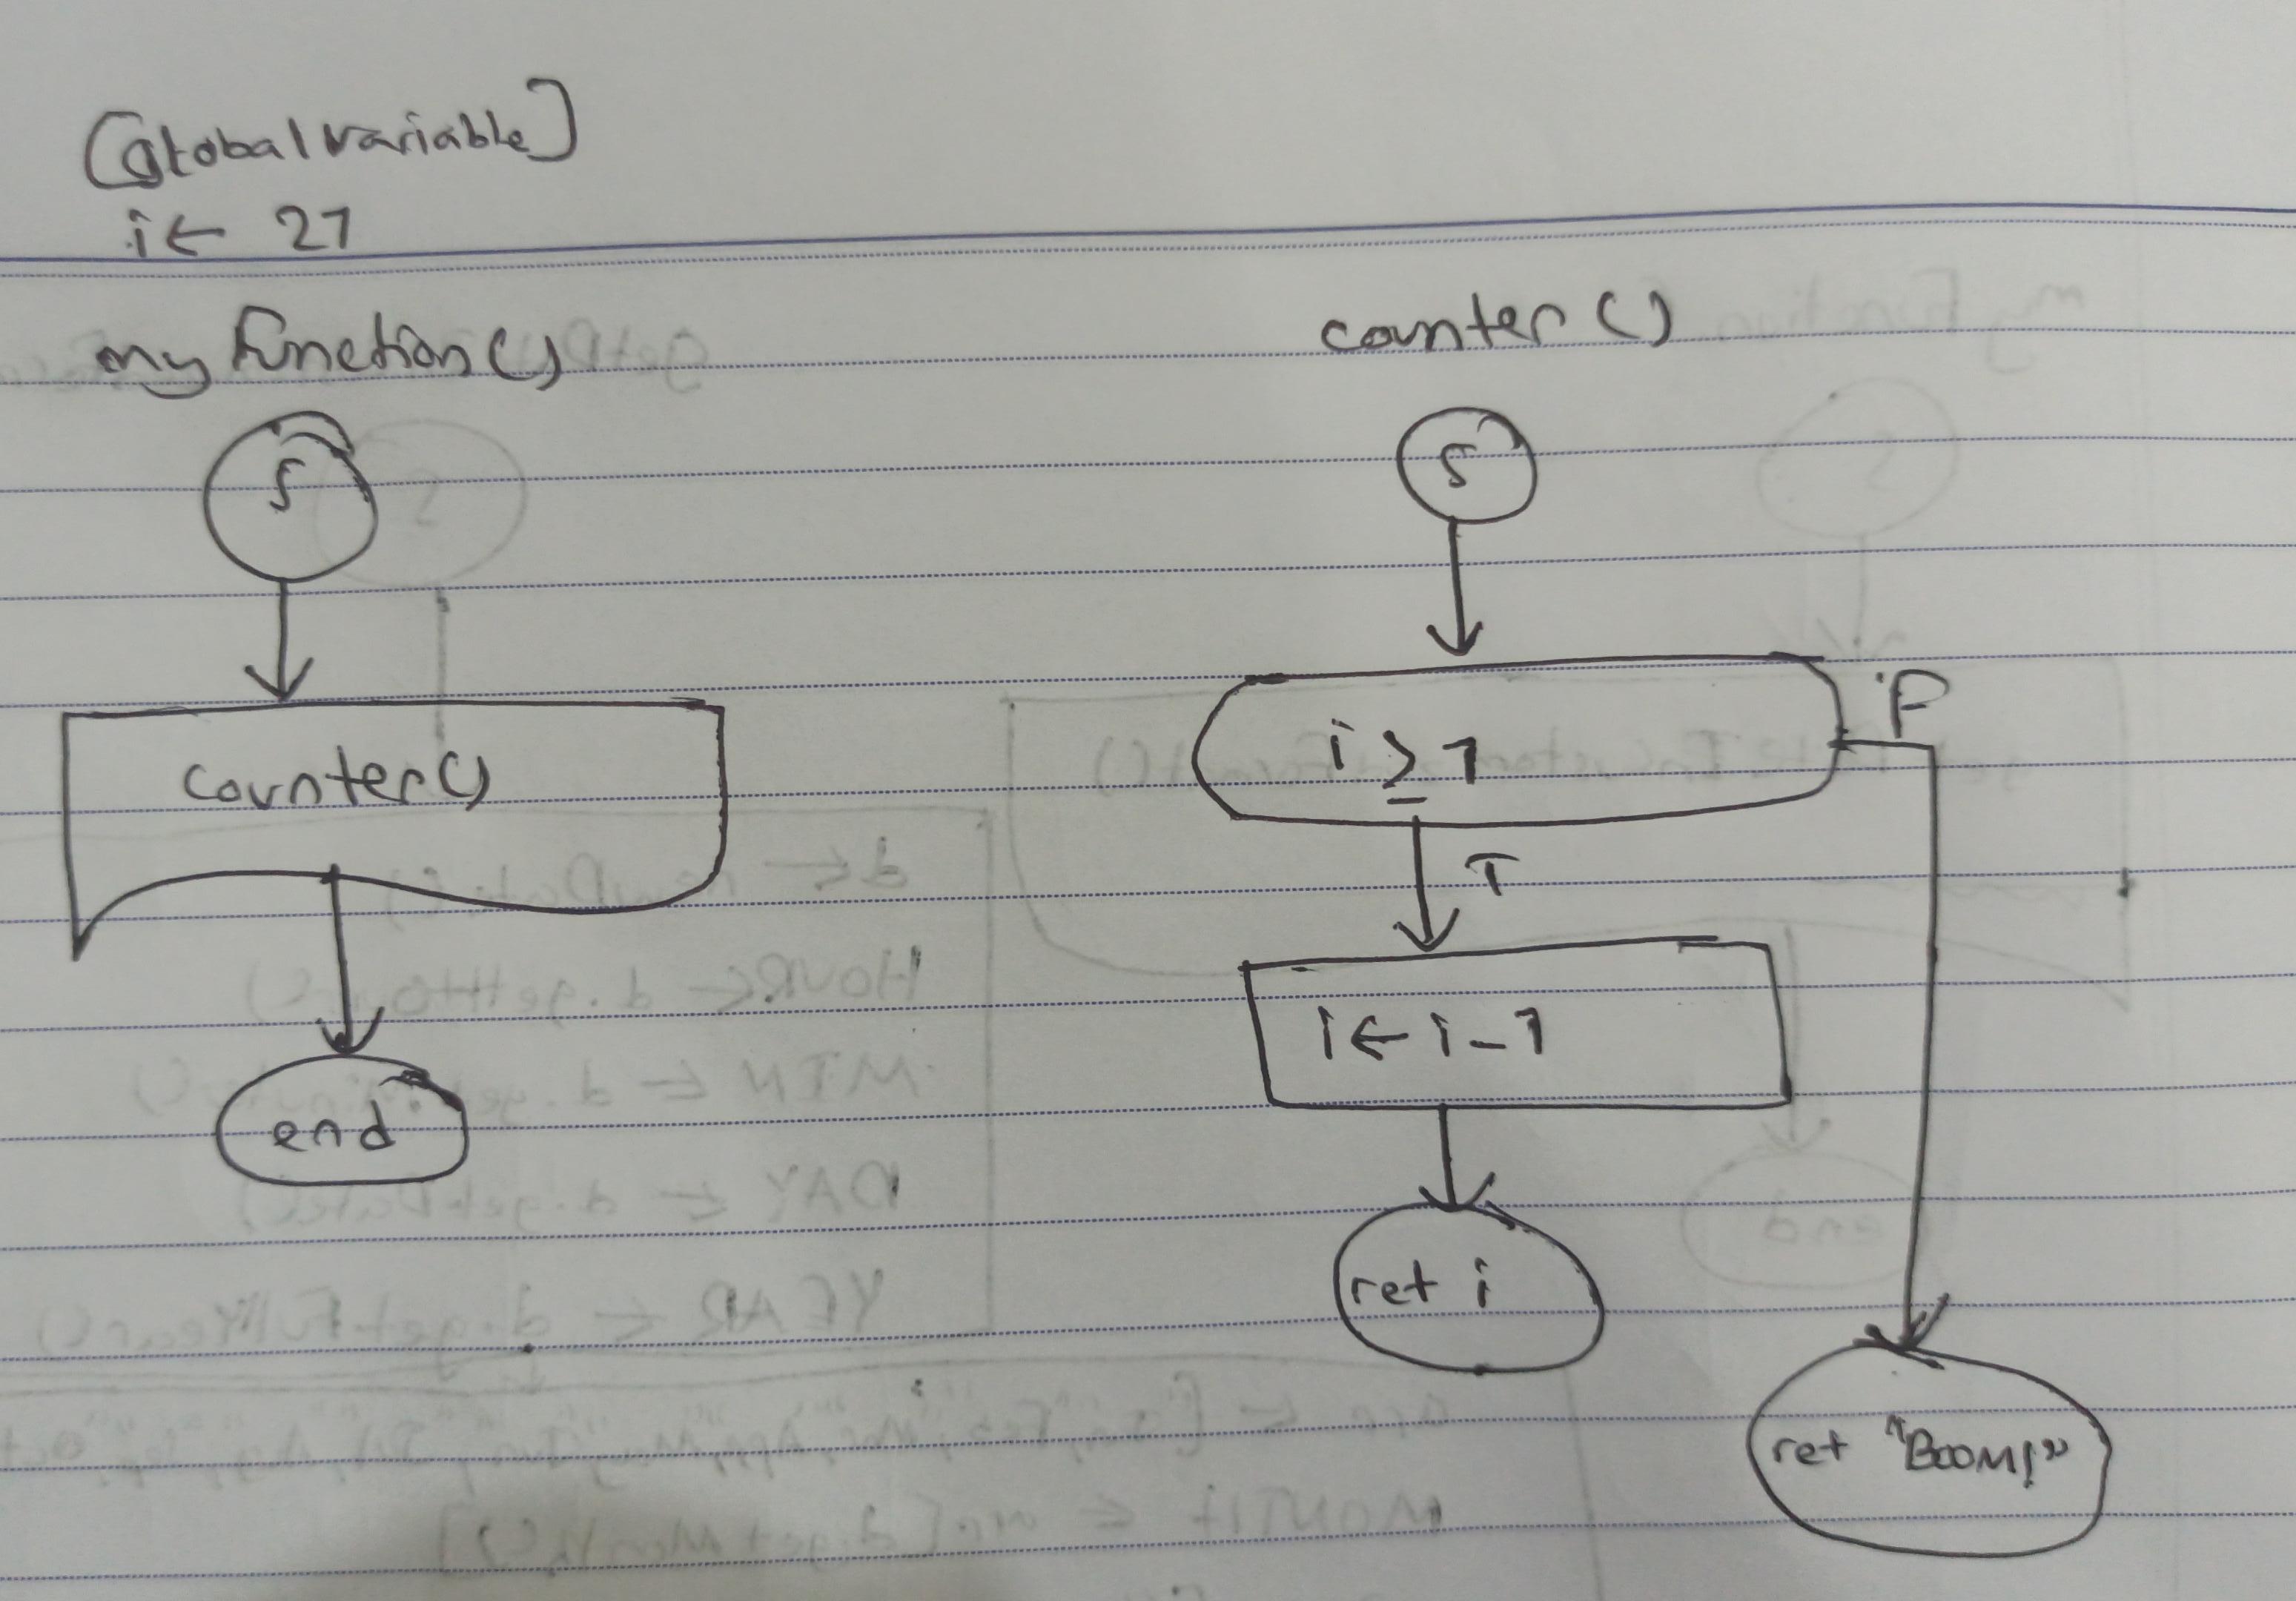 [Global variable]
i ← 21
my Function()
S
counter()
end
counter()
S
i ≥ 1
F
T
i ← i - 1
ret i
ret "BOOM!"